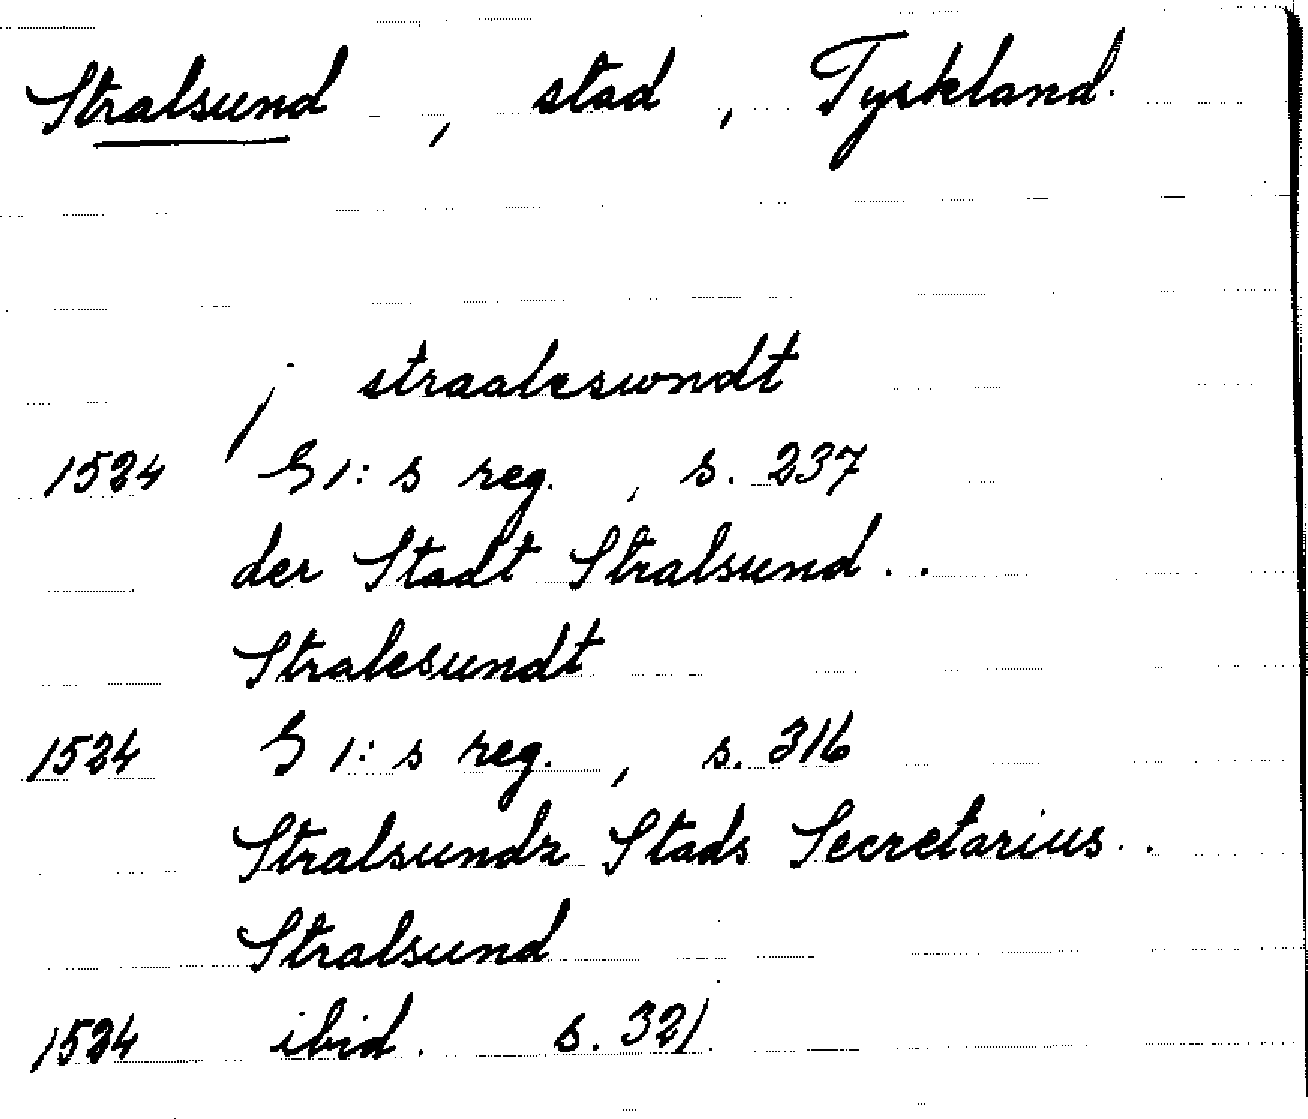 Stralsund, stad, Tyskland.
j straaleswndt
1524 G1:s reg., s. 237
der Stadt Stralsund..
Stralesundt
1524 G1:s reg., s. 316
Stralsundz Stads Secretarius..
Stralsund
1524 ibid. s. 321.